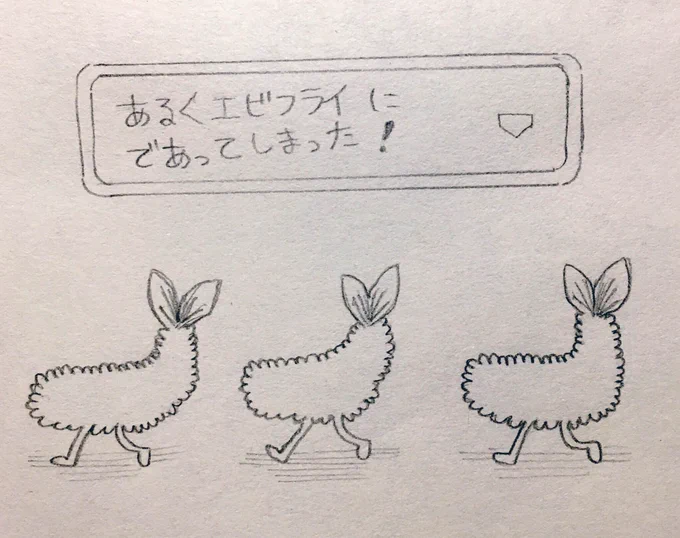 あるくエビフライに
であってしまった!